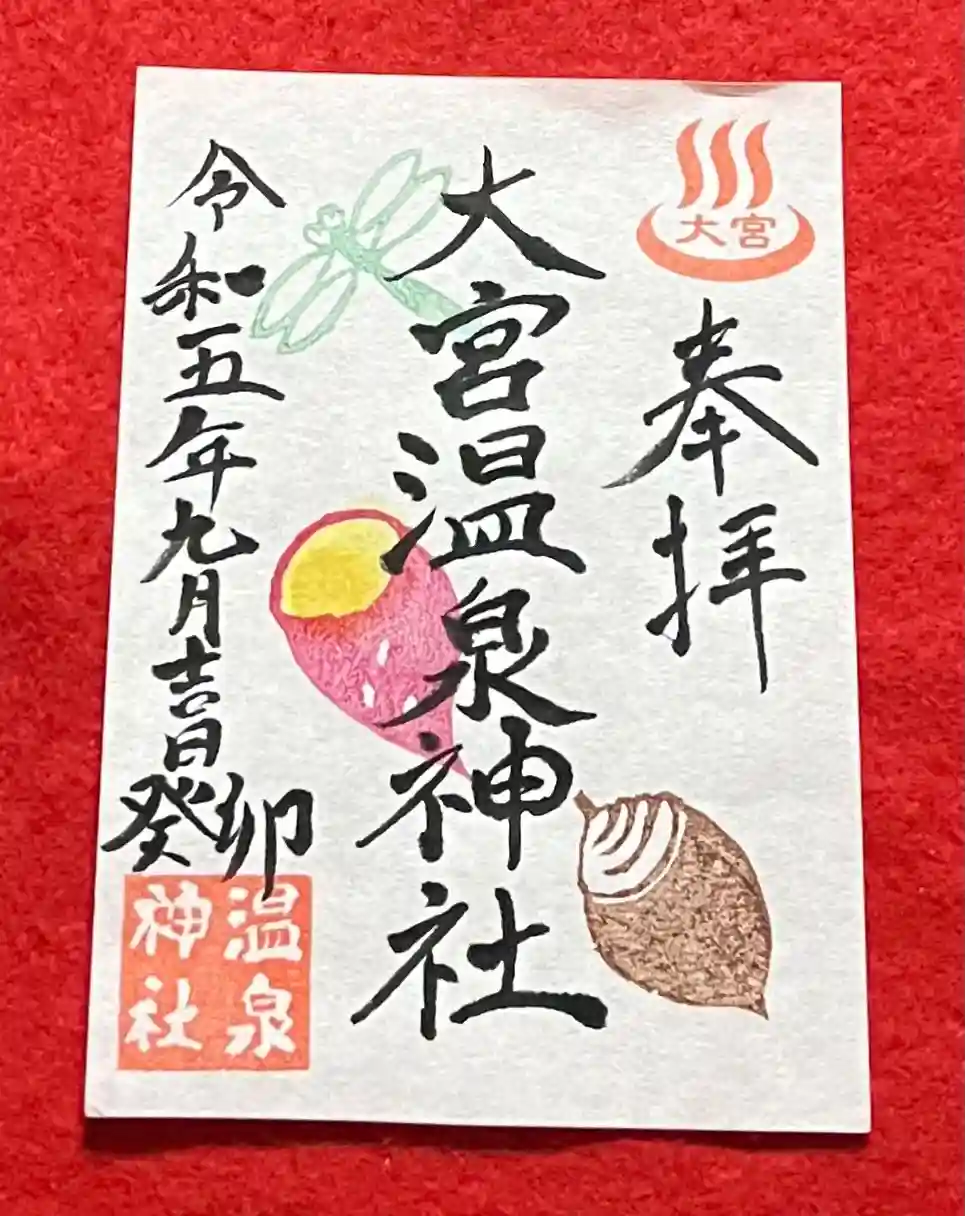 大宮
奉拝
大宮温泉神社
令和五年九月吉日
癸卯
温泉
神社